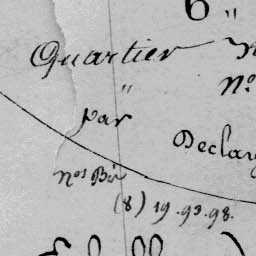 6 "
Quartier
"
No.
par
Decla
nos Bis
(8) 19.93.98.